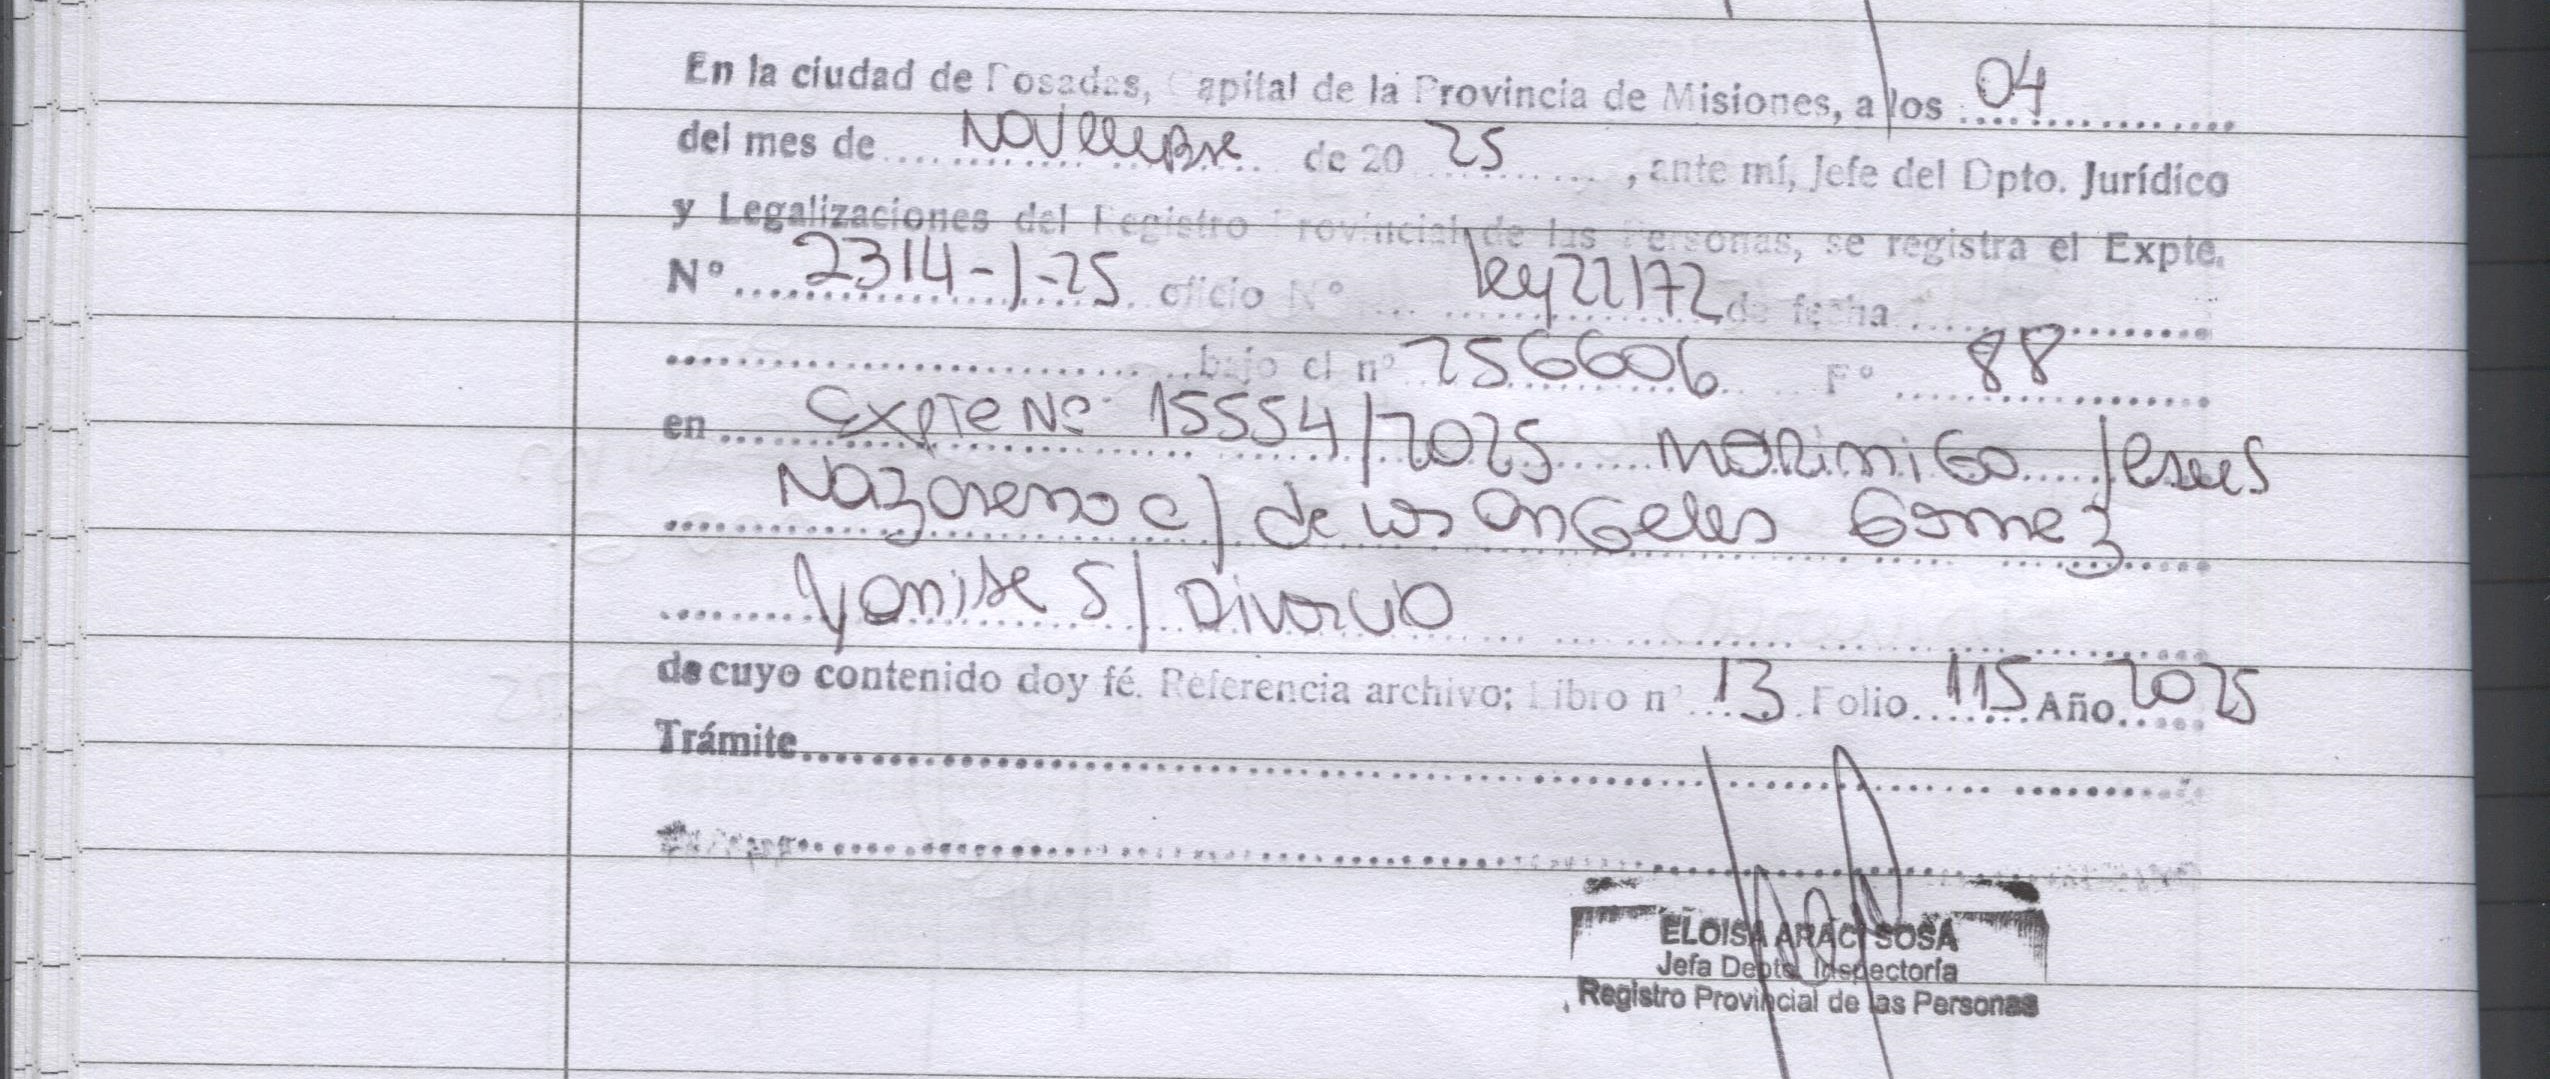 En la ciudad de Posadas, Capital de la Provincia de Misiones, a los 04
del mes de Noviembre de 20 25, ante mí, Jefe del Dpto. Jurídico
y Legalizaciones del Registro Provincial de las Personas, se registra el Expte.
Nº 2314-J-25 oficio Nº ley 22172 de fecha
bajo el nº 256606 Fº 88
en Expte Nº 15554/2025 Moriñigo Jesus
Nazareno c/ de los Angeles Gomez
Yanise S/ Divorcio
de cuyo contenido doy fé. Referencia archivo: Libro nº 13 Folio 115 Año 2025
Trámite
ELOISA ARACI SOSA
Jefa Depto. Inspectoría
Registro Provincial de las Personas